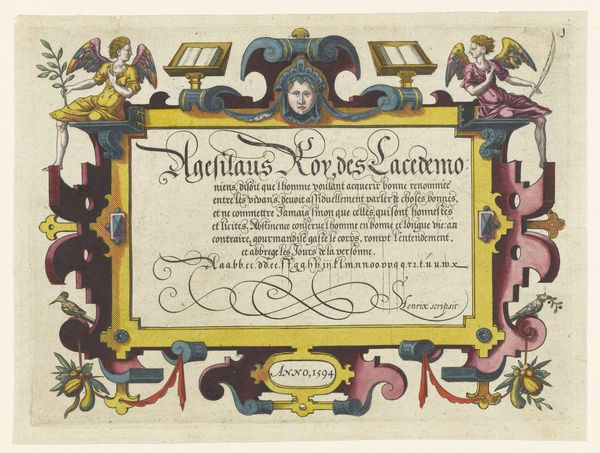 1
Agesilaus Roy, des Lacedemo
niens, disoit que l'homme voulant acquerir bonne renommée
entre les viuans, deuoit assiduellement parler de choses bonnes,
et ne commettre Jamais sinon que celles qui sont honnestes
et licites. Abstinence conserue l'homme en bonne et longue vie: au
contraire, gourmandise gaste le corps, rompt l'entendement,
et abbrege les Jours de la personne.
A a a b b. c c. d d. e e. f f. g g. h h. i n. k l m. n n o o. v v q q. r. z. t. u u. w. x
Henrix scripsit
ANNO, 1594